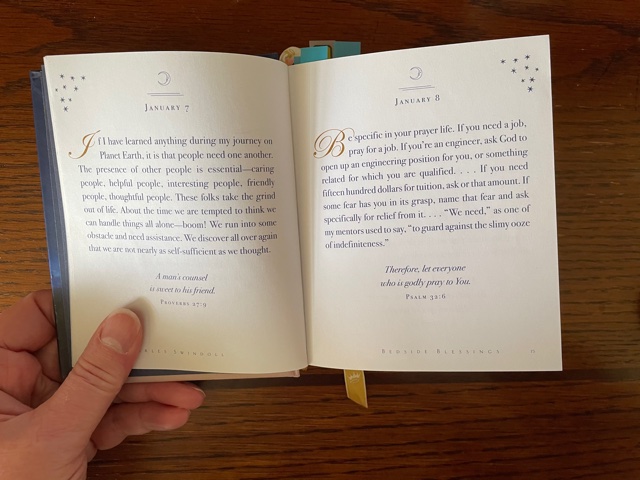 January 7
If I have learned anything during my journey on
Planet Earth, it is that people need one another.
The presence of other people is essential—caring
people, helpful people, interesting people, friendly
people, thoughtful people. These folks take the grind
out of life. About the time we are tempted to think we
can handle things all alone—boom! We run into some
obstacle and need assistance. We discover all over again
that we are not nearly as self-sufficient as we thought.
A man's counsel
is sweet to his friend.
Proverbs 27:9
Swindoll
January 8
Be specific in your prayer life. If you need a job,
pray for a job. If you're an engineer, ask God to
open up an engineering position for you, or something
related for which you are qualified. . . . If you need
fifteen hundred dollars for tuition, ask or that amount. If
some fear has you in its grasp, name that fear and ask
specifically for relief from it. . . . "We need," as one of
my mentors used to say, "to guard against the slimy ooze
of indefiniteness."
Therefore, let everyone
who is godly pray to You.
Psalm 32:6
Bedside Blessings